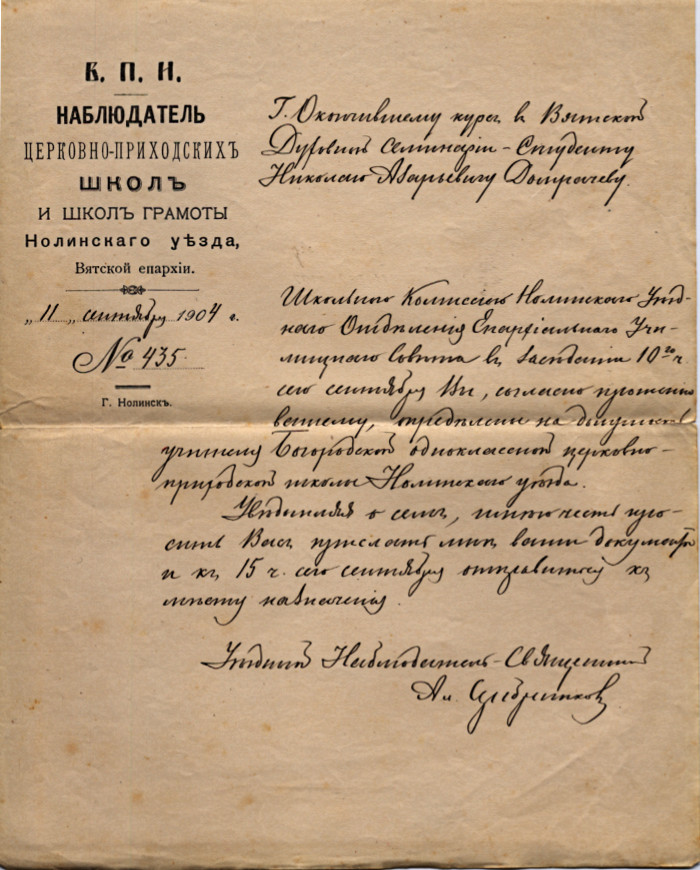 В. П. И.
НАБЛЮДАТЕЛЬ
ЦЕРКОВНО-ПРИХОДСКИХЪ
ШКОЛЪ
И ШКОЛЪ ГРАМОТЫ
Нолинскаго уѣзда,
Вятской епархіи.
„11„ сентября 1904 г.
№ 435.
Г. Нолинскъ.
Г. Окончившему курсъ въ Вятской
Духовной Семинаріи - Студенту
Николаю Азарьевичу Домрачеву.
Школьною Комиссіею Нолинскаго Уѣзд-
наго Отдѣленія Епархіальнаго Учи-
лищнаго Совѣта въ засѣданіи 10го ч.
сего сентября Вы, согласно прошенію
вашему, опредѣлены на должность
учителя Богородской одноклассной церковно-
приходской школы Нолинскаго уѣзда.
Увѣдомляя о семъ, имѣю честь про-
сить Васъ прислать мнѣ ваши документы
и къ 15 ч. сего сентября отправиться къ
мѣсту назначенія.
Уѣздный Наблюдатель - Священникъ
Ал. Серебренниковъ